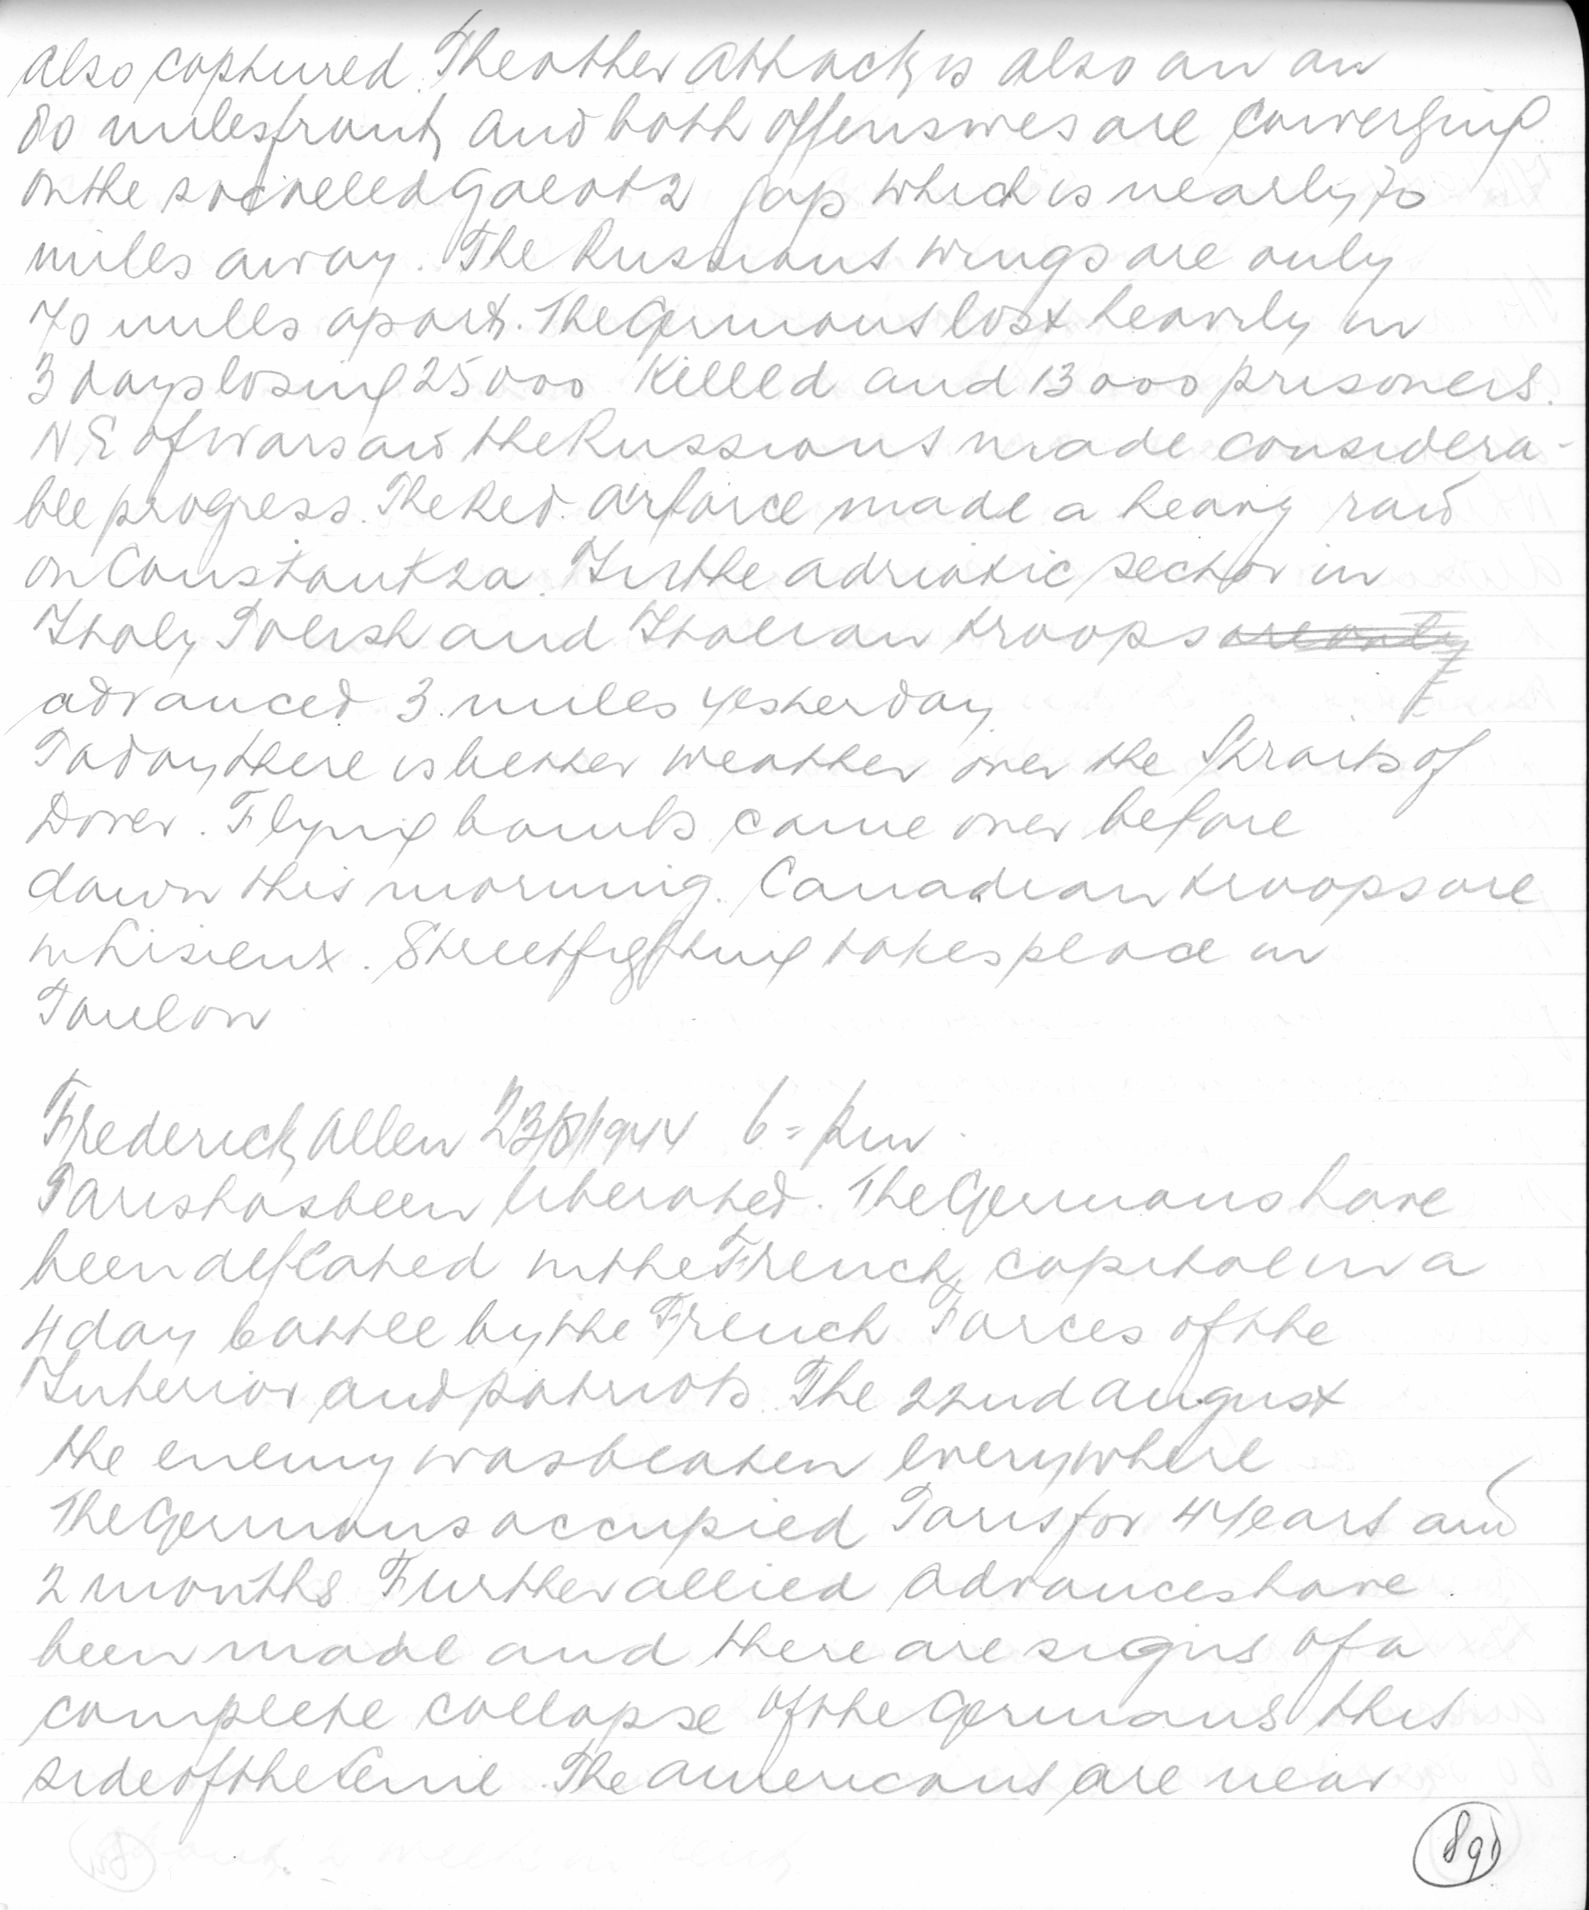 also captured. The other attack is also on an
80 miles front, and both offensives are converging
on the socalled Galatz gap which is nearly 70
miles away. The Russians wings are only
70 miles apart. The Germans lost heavily in
3 days losing 25000 killed and 13000 prisoners.
N.E of Warsaw the Russians made considera-
ble progress. The Red. airforce made a heavy raid
on Constantza. In the adriatic sector in
Italy Polish and Italian troops are only
advanced 3 miles yesterday
Today there is better weather over the Straits of
Dover. Flying bombs came over before
dawn this morning. Canadian troops are
in Lisieux. Streetfighting takes place in
Toulon
Frederick Allen 23/8/1944 6 = pm
Paris has been liberated. The Germans have
been defeated in the French capital in a
4 day battle by the French Forces of the
Interior and patriots. The 22nd august
the enemy was beaten everywhere
The Germans occupied Paris for 4 years and
2 months Further allied advances have
been made and there are signs of a
complete collapse of the Germans this
side of the Seine. The americans are near
89